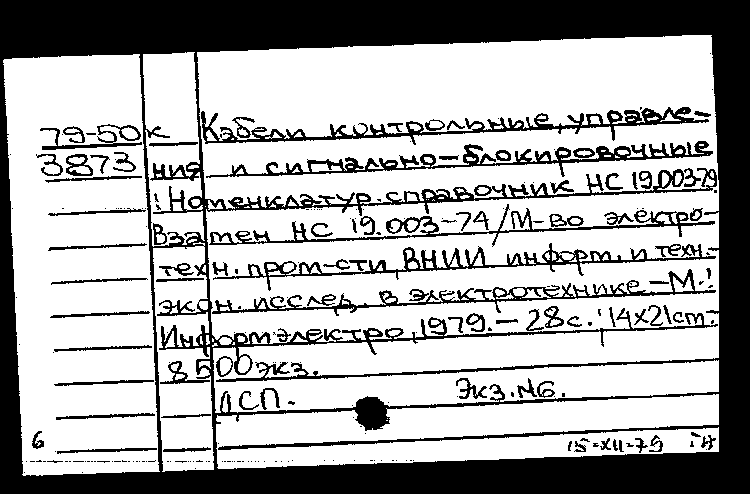 79-50к Кабели контрольные, управле-
3873 ния и сигнально-блокировочные
: Номенклатур. справочник НС 19.003-79
Взамен НС 19.003-74/М-во электро-
техн. пром-сти, ВНИИ информ. и техн.-
экон. исслед. в электротехнике.-М.:
Информэлектро, 1979.- 28с.; 14х21cm.-
8500экз.
ДСП. Экз.№6.
6 15-XII-79